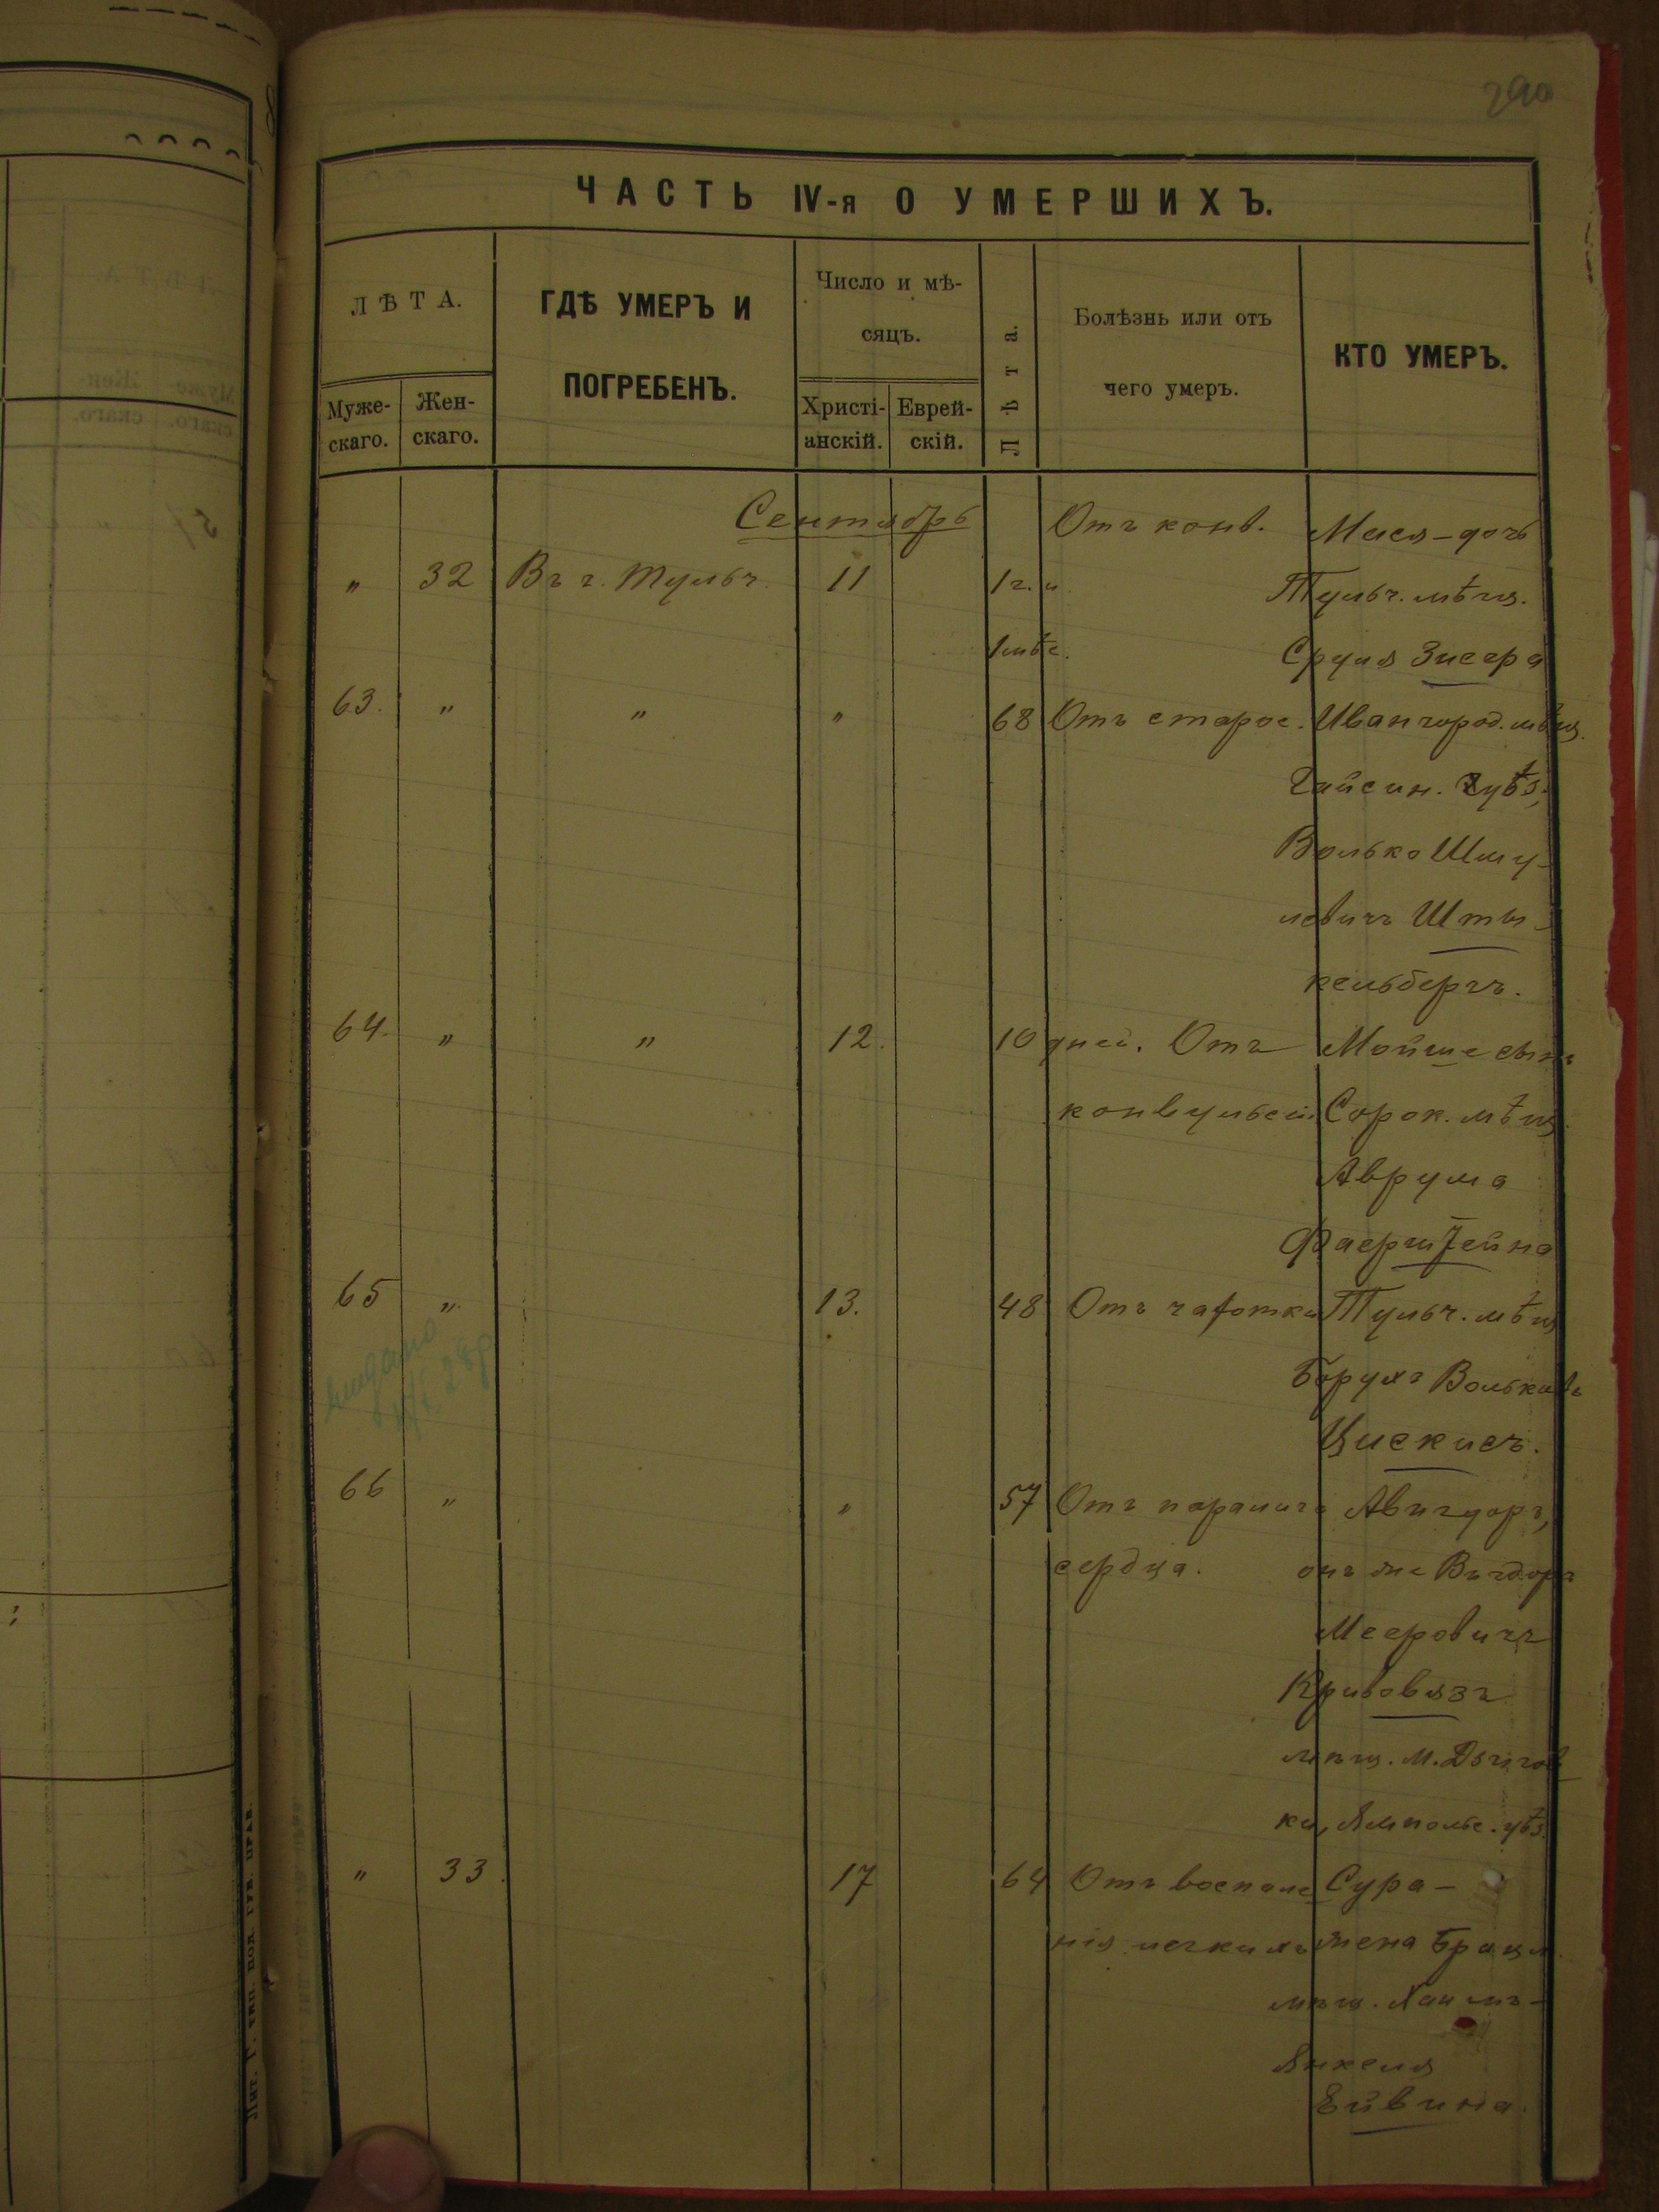 290
ЧАСТЬ IV-я О УМЕРШИХЪ.
ЛѢТА.
Муже-
скаго.
Жен-
скаго.
ГДѢ УМЕРЪ И
ПОГРЕБЕНЪ.
Число и мѣ-
сяцъ.
Христі-
анскій.
Еврей-
скій.
Лѣта.
Болѣзнь или отъ
чего умеръ.
КТО УМЕРЪ.
Сентябрь Отъ конв. дочь
" 32 Въ г. Тульч. 11 1 г. и Тульч. мѣщ.
1 мѣс. Сруля Зисера
63. " " " 68 Отъ старос. Ивангород. мѣщ.
Гайсин. уѣз.
Волько Шму-
левичъ Шты-
кельбергъ.
64. " " 12. 10 дней. Отъ Мойше сынъ
конвульсій Сорок. мѣщ.
Аврума
Фаерштейна
65 " 13. 48 Отъ чахотки Тульч. мѣщ
Борухъ Вольковъ
Цискисъ.
66 " " 57 Отъ паралича Авигдоръ,
сердца. онъ же Вигдоръ
Мееровичъ
Кривовязъ
мѣщ. м. Дзигов
ки, Ямпольс. уѣз.
" 33. 17 64 Отъ воспале Сура -
нія легкихъ жена Брацл.
мѣщ. Хаимъ-
Янкеля
Ейвина.
Лит. Г. тип. под. губ. прав.